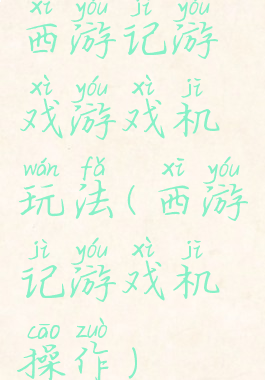 xī yóu jì yóu
西游记游
xì yóu xì jī
戏游戏机
wán fǎ xī yóu
玩法(西游
jì yóu xì jī
记游戏机
cāo zuò
操作)